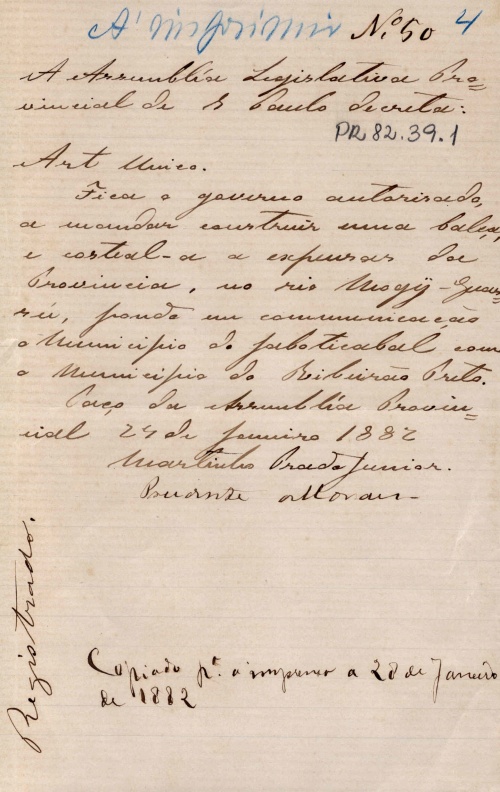 A' imprimir Nº 50 4
A Assembléa Legislativa Pro=
vincial de S Paulo decreta:
PR 82.39.1
Art Unico.
Fica o governo autorisado,
a mandar construir uma balça,
e costeal-a a expensas da
Provincia, no rio Mogÿ-Guas=
sú, pondo em communicação
o Municipio de Jaboticabal com
o Municipio do Ribeirão Preto.
Paço da Assembléa Provin=
cial 27 de Janeiro 1882
Martinho Prado Junior.
Prudente Moraes
Registrado.
Copiado pª. a imprensa a 28 de Janeiro
de 1882